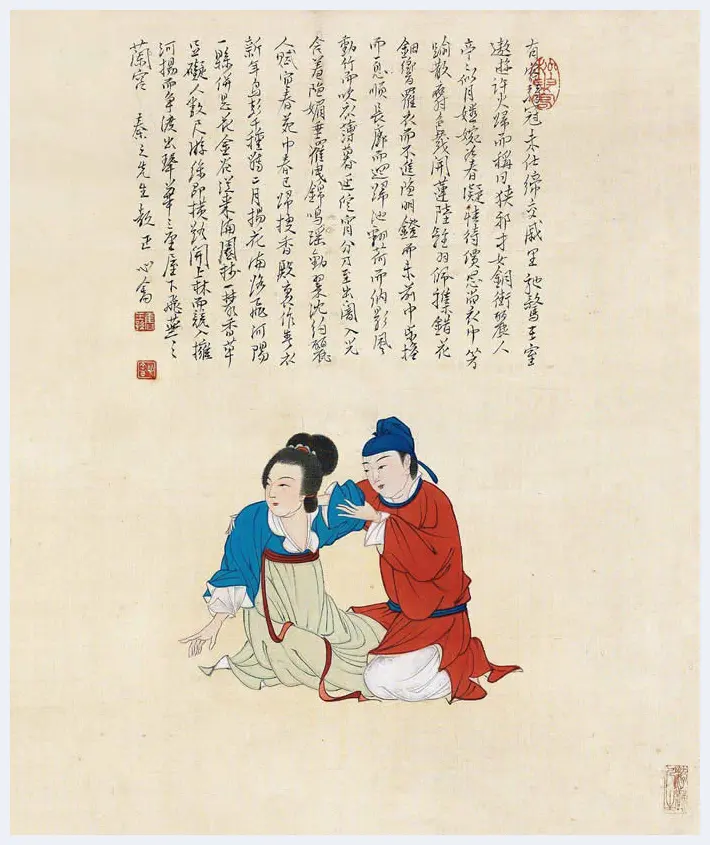 有冠未仕締交戚里馳騖王室
遨遊許史歸而稱曰狹邪才女銅街麗人
亭亭似月嬿婉如春凝情待價思尚衣巾芳
踰散麝色茂開蓮陸離羽佩雜錯花
鈿響羅衣而不進隱明鐙而未前中步檐
而一息順長廊而迴歸池翻荷而納影風
動竹而吹衣薄暮延佇宵分乃至出闇入光
含羞隱媚垂羅曳錦鳴瑤動翠沈約麗
人賦宜春苑中春已歸披香殿裏作春衣
新年鳥聲千種囀二月楊花滿路飛河陽
一縣併是花金谷從來滿園樹一叢香草
足礙人數尺游絲即橫路開上林而競入擁
河橋而爭渡出麗華之金屋下飛燕之
蘭宮 秦之先生教正 心畬